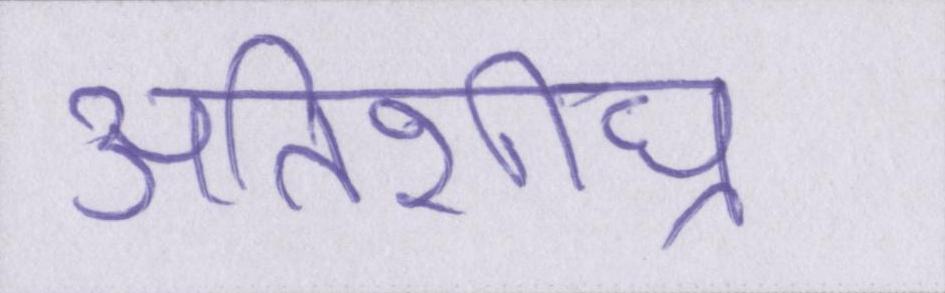 अतिशीघ्र